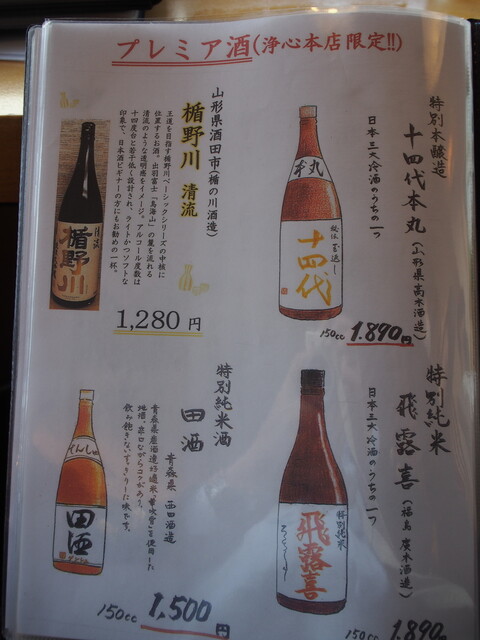 プレミア酒(浄心本店限定!!)
特別本醸造
十四代本丸(山形県高木酒造)
日本三大冷酒のうちの一つ
本丸
十四代
150cc 1.890円
山形県酒田市(楯の川酒造)
楯野川 清流
王道を目指す楯野川ベーシックシリーズの中核に
位置するお酒。出羽富士「鳥海山」の麓を流れる
清流のような透明感をイメージ。アルコール度数は
十四度台と若干低く設計され、ライトかつソフトな
印象で、日本酒ビギナーの方にもお勧めの一杯。
清流
楯野川
1,280円
特別純米
飛露喜(福島 廣木酒造)
日本三大冷酒のうちの一つ
特別純米
飛露喜
150cc 1.890
特別純米酒
田酒 青森県 西田酒造
飲み飽きないすっきりした味です。
でんしゅ
田酒
150cc 1,500円